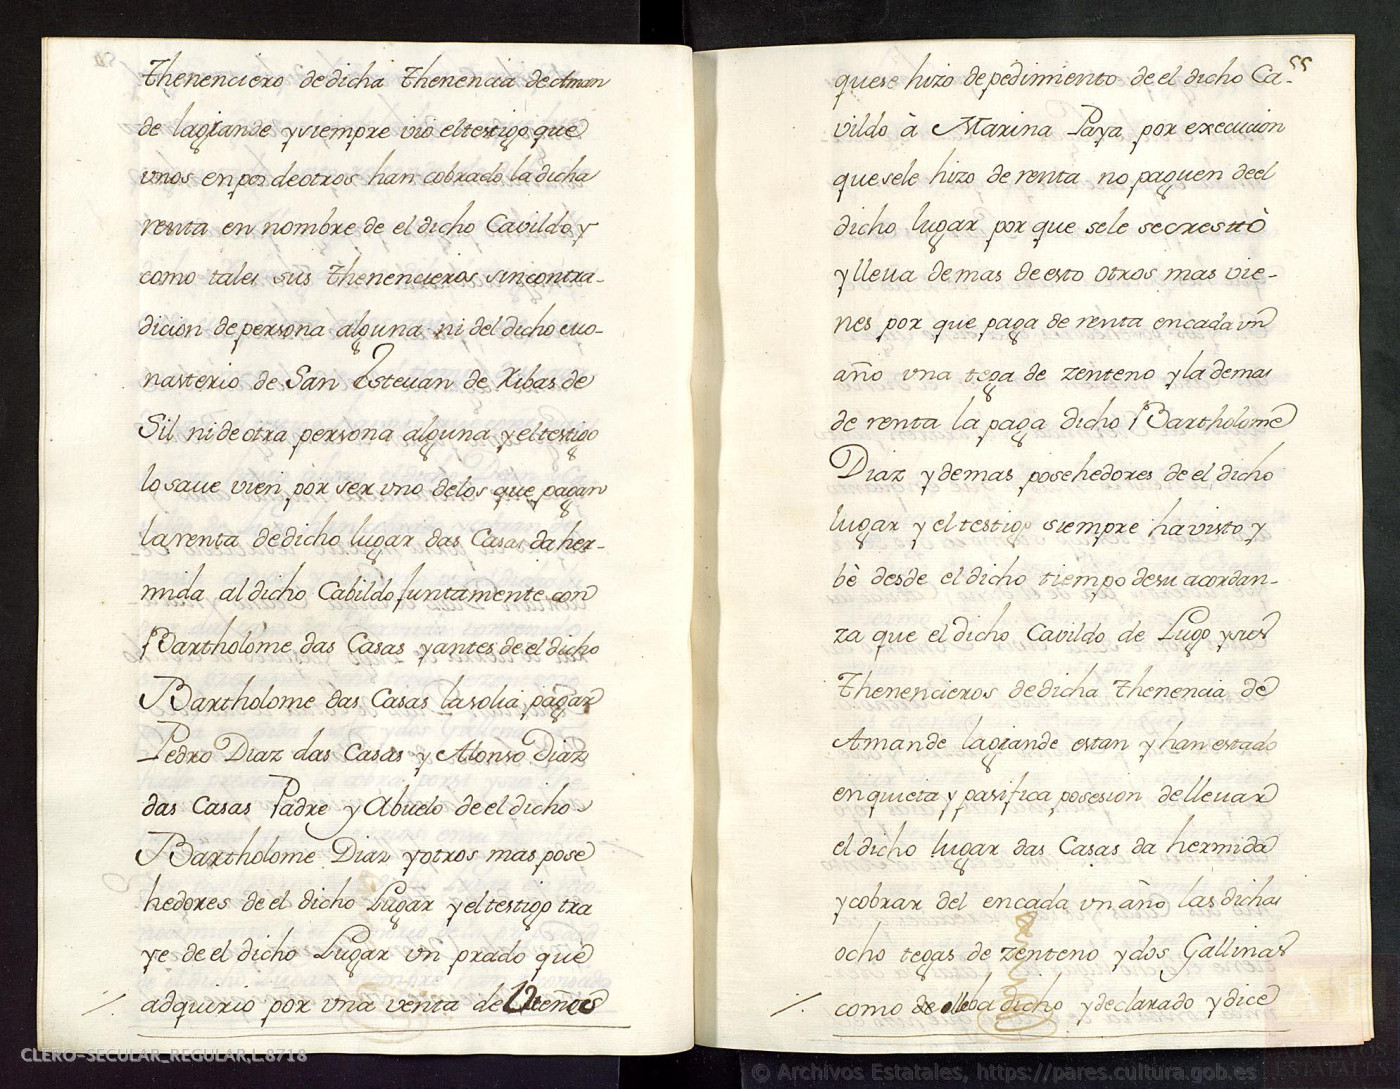 Thenenciero dedicha Thenencia deAman
de lagrande ysiempre vio eltestigo que
vnos enpos deotros han cobrado la dicha
renta en nombre de el dicho Cavildo y
como tales sus Thenencieros sincontra-
dicion depersona alguna ni del dicho mo-
nasterio de San Estevan de Ribas de
Sil nideotra persona alguna yeltestigo
lo save vien por ser vno delos que pagan
larenta dedicho lugar das Casas daher-
mida al dicho Cabildo Juntamente con
Bartholome das Casas yantes de el dicho
Bartholome das Casas lasolia pagar
Pedro Diaz das Casas y Alonso Diaz
das Casas Padre y Abuelo de el dicho
Bartholome Diaz yotros mas pose
hedores de el dicho Lugar yeltestigo tra
ye de el dicho Lugar vn prado que
adquirio por vna venta de
55
quese hizo depedimiento de el dicho Ca-
vildo à Marina Paya por execucion
quesele hizo de renta no paguen deel
dicho lugar por que sele secrestò
ylleua demas deesto otros mas vie-
nes por que paga de renta encada vn
año vna tega de zenteno yla demas
de renta la paga dicho Bartholome
Diaz ydemas posehedores de el dicho
lugar y eltestigo siempre havisto y
bè desde el dicho tiempo desu acordan-
za que el dicho Cavildo de Lugo ysus
Thenencieros dedicha Thenencia de
Amande lagrande estan yhan estado
enquieta y pasifica posesion dellevar
el dicho lugar das Casas da hermida
ycobrar del encada vn año las dichas
ocho tegas de zenteno ydos Gallinas
como dicho ydeclarado ydice
CLERO-SECULAR_REGULAR,L.8718
© Archivos Estatales, https://pares.cultura.gob.es
ARCHIVOS
ESTATALES